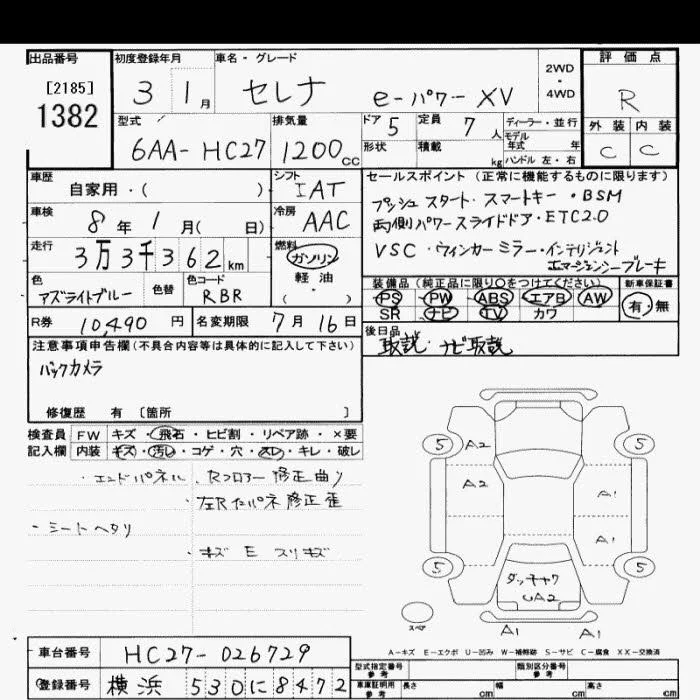 出品番号 初度登録年月 車名・グレード 2WD・4WD 評価点
[2185]
1382
3 1月 セレナ e-パワー XV R
型式 排気量 ドア 5 定員 7人 ディーラー・並行 外装 内装
6AA-HC27 1200cc 形状 積載 kg モデル年式 年 C C
ハンドル 左・右
車歴 自家用・( ) シフト IAT セールスポイント (正常に機能するものに限ります)
プッシュスタート・スマートキー・BSM
車検 8年 1月( 日) 冷房 AAC 両側パワースライドドア・ETC2.0
走行 3万3千362km 燃料 ガソリン 軽油 ( ・ ) VSC・ウィンカーミラー・インテリジェント
エマージェンシーブレーキ
色 アズライトブルー 色替 色コード RBR
装備品(純正品に限り○をつけてください) 新車保証書
PS PW ABS エアB AW 有・無
SR ナビ TV カワ
R券 10,490円 名変期限 7月16日
後日品 取説・ナビ取説
注意事項申告欄(不具合内容等は具体的に記入して下さい)
バックカメラ
修復歴 有 〔箇所 〕
検査員 FW キズ・飛石・ヒビ割・リペア跡・×要
記入欄 内装 キズ・汚レ・コゲ・穴・スレ・キレ・破レ
・エンドパネル、Rフロアー修正曲り
・左Rインパネ修正歪
・シートヘタリ
・キズ E スリキズ
5 A2 5
A2 A1
A1
5 ダッキャク 5
UA2
スペア A1 A1
A-キズ E-エクボ U-凹み W-補修跡 S-サビ C-腐食 XX-交換済
車台番号 HC27-026729
型式指定番号 参考 類別区分番号 参考
登録番号 横浜 530 に 8472
車庫証明用 参考 長さ cm 幅 cm 高さ cm